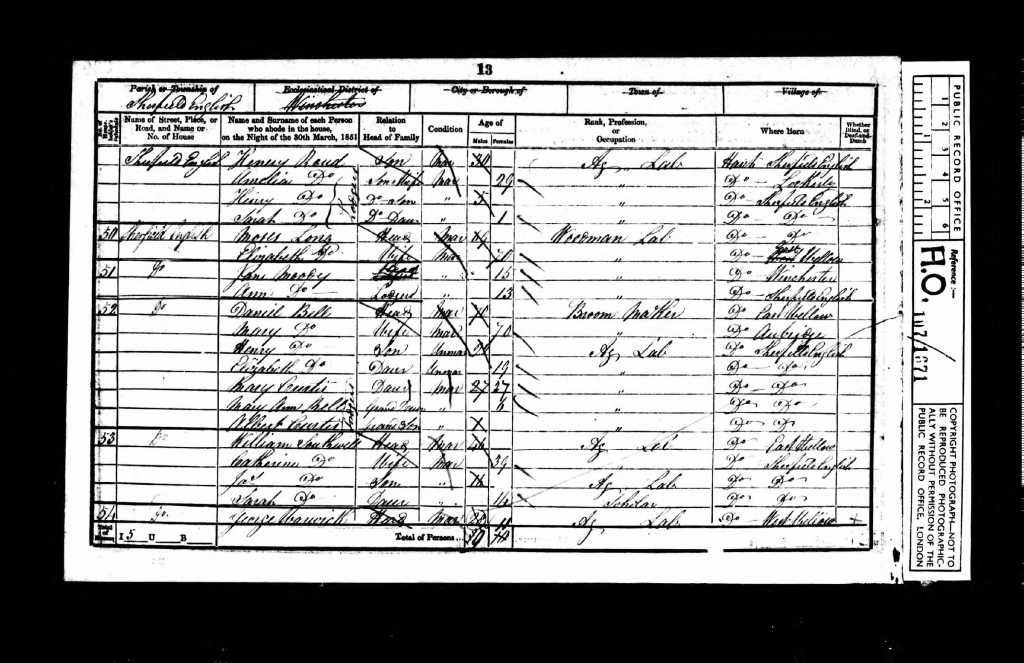 13
Parish or Township of Ecclesiastical District of City or Borough of Town of Village of
Sherfield English
Name of Street, Place, or Road, and Name or No. of House
Name and Surname of each Person who abode in the house, on the Night of the 30th March, 1851
Relation to Head of Family
Condition
Age of
Males Females
Rank, Profession, or Occupation
Where Born
Whether Blind, or Deaf-and-Dumb
Sherfield English Henry Son Mar 30 Ag Lab Hants Sherfield English
Amelia Do Sons Wife Mar 29 " Do Lockerly
Henry Do Do Son " " Do Sherfield English
Sarah Do Do Daur " 1 " Do Do
50 Sherfield English Moses Long Head Mar Woodman Lab Do Do
Elizabeth Do Wife Mar 70 " Do East Wellow
51 Do Jane Moody " 15 " Do Winchester
Ann Do Lodger " 13 " Do Sherfield English
52 Do Daniel Bell Head Mar Broom Maker Do East Wellow
Mary Do Wife Mar 70 " Do
Henry Do Son Unmar Ag Lab Do Sherfield English
Elizabeth Do Daur Unmar 19 " Do Do
Mary Curtis Daur Mar 27 27 " Do Do
Mary Ann Bell Grand Daur " 6 " Do Do
Albert Curtis Grand Son " " Do Do
53 Do William Head Mar 46 Ag Lab Do East Wellow
Catherine Do Wife Mar 39 " Do Sherfield English
Jas Do Son " Ag Lab Do Do
Sarah Do Daur " 14 Scholar Do Do
54 Do George Warwick Head Mar Ag Lab Do West Wellow
Total of Houses I 5 U B Total of Persons
PUBLIC RECORD OFFICE
1 2 3 4 5 6
1 2
Reference :—
H.O. 107/1671
COPYRIGHT PHOTOGRAPH—NOT TO
BE REPRODUCED PHOTOGRAPHIC-
ALLY WITHOUT PERMISSION OF THE
PUBLIC RECORD OFFICE, LONDON